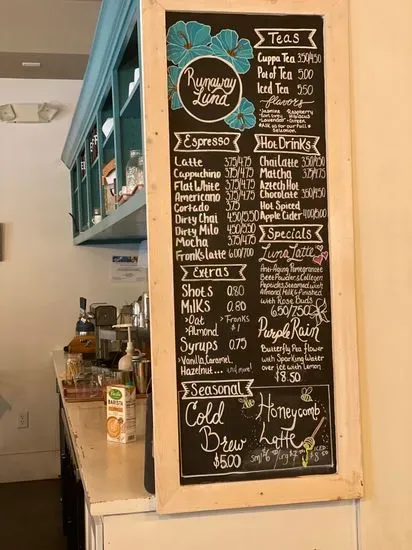 Runaway
Luna
Teas
Cuppa Tea 3.50/4.50
Pot of Tea 5.00
Iced Tea 5.50
flavors
Jasmine
Raspberry
Earl Grey
Hibiscus
Lavender
Green
Ask us for our full
selection
Espresso
Latte 3.75/4.75
Cappuchino 3.75/4.75
Flat White 3.75/4.75
Americano 3.75/4.75
Cortado 3.75
Dirty Chai 4.50/5.50
Dirty Milo 4.50/5.50
Mocha 3.75/4.75
Franks Latte 6.00/7.00
Hot Drinks
Chai Latte 3.50/4.50
Matcha 3.75/4.75
Aztech Hot
Chocolate 3.50/4.50
Hot Spiced
Apple Cider 4.00/5.00
Extras
Shots 0.80
Milks .80
Oat
Almond
Franks
$1
Syrups 0.75
Vanilla, Caramel,
Hazelnut... and more!
Specials
Luna Latte
Anti-Aging Pomegranate
Beet Powder & Collagen
Peptides, Steamed with
Almond Milk & Finished
with Rose Buds
6.50/7.50
Purple Rain
Butterfly Pea flower
with Sparkling Water
over ice with Lemon
$8.50
Seasonal
Cold
Brew
$5.00
Honeycomb
Latte
sml $6 lrg $7 ICED $8
BARISTA